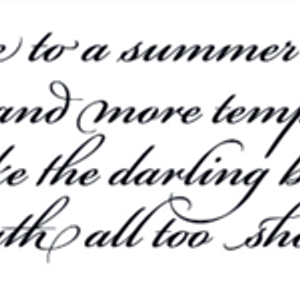 e to a summer
and more temp
ke the darling b
ath all too sho